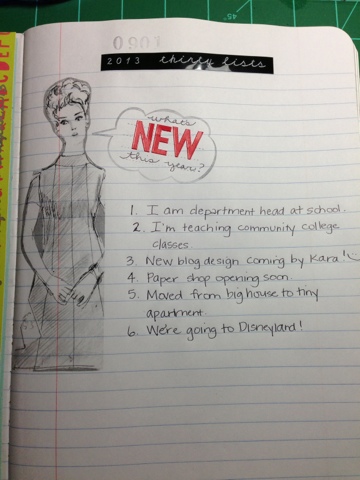 2013 thirty lists
what's
NEW
this year?
1. I am department head at school.
2. I'm teaching community college
classes
3. New blog design coming by Kara!
4. Paper shop opening soon
5. Moved from big house to tiny
apartment
6. We're going to Disneyland!